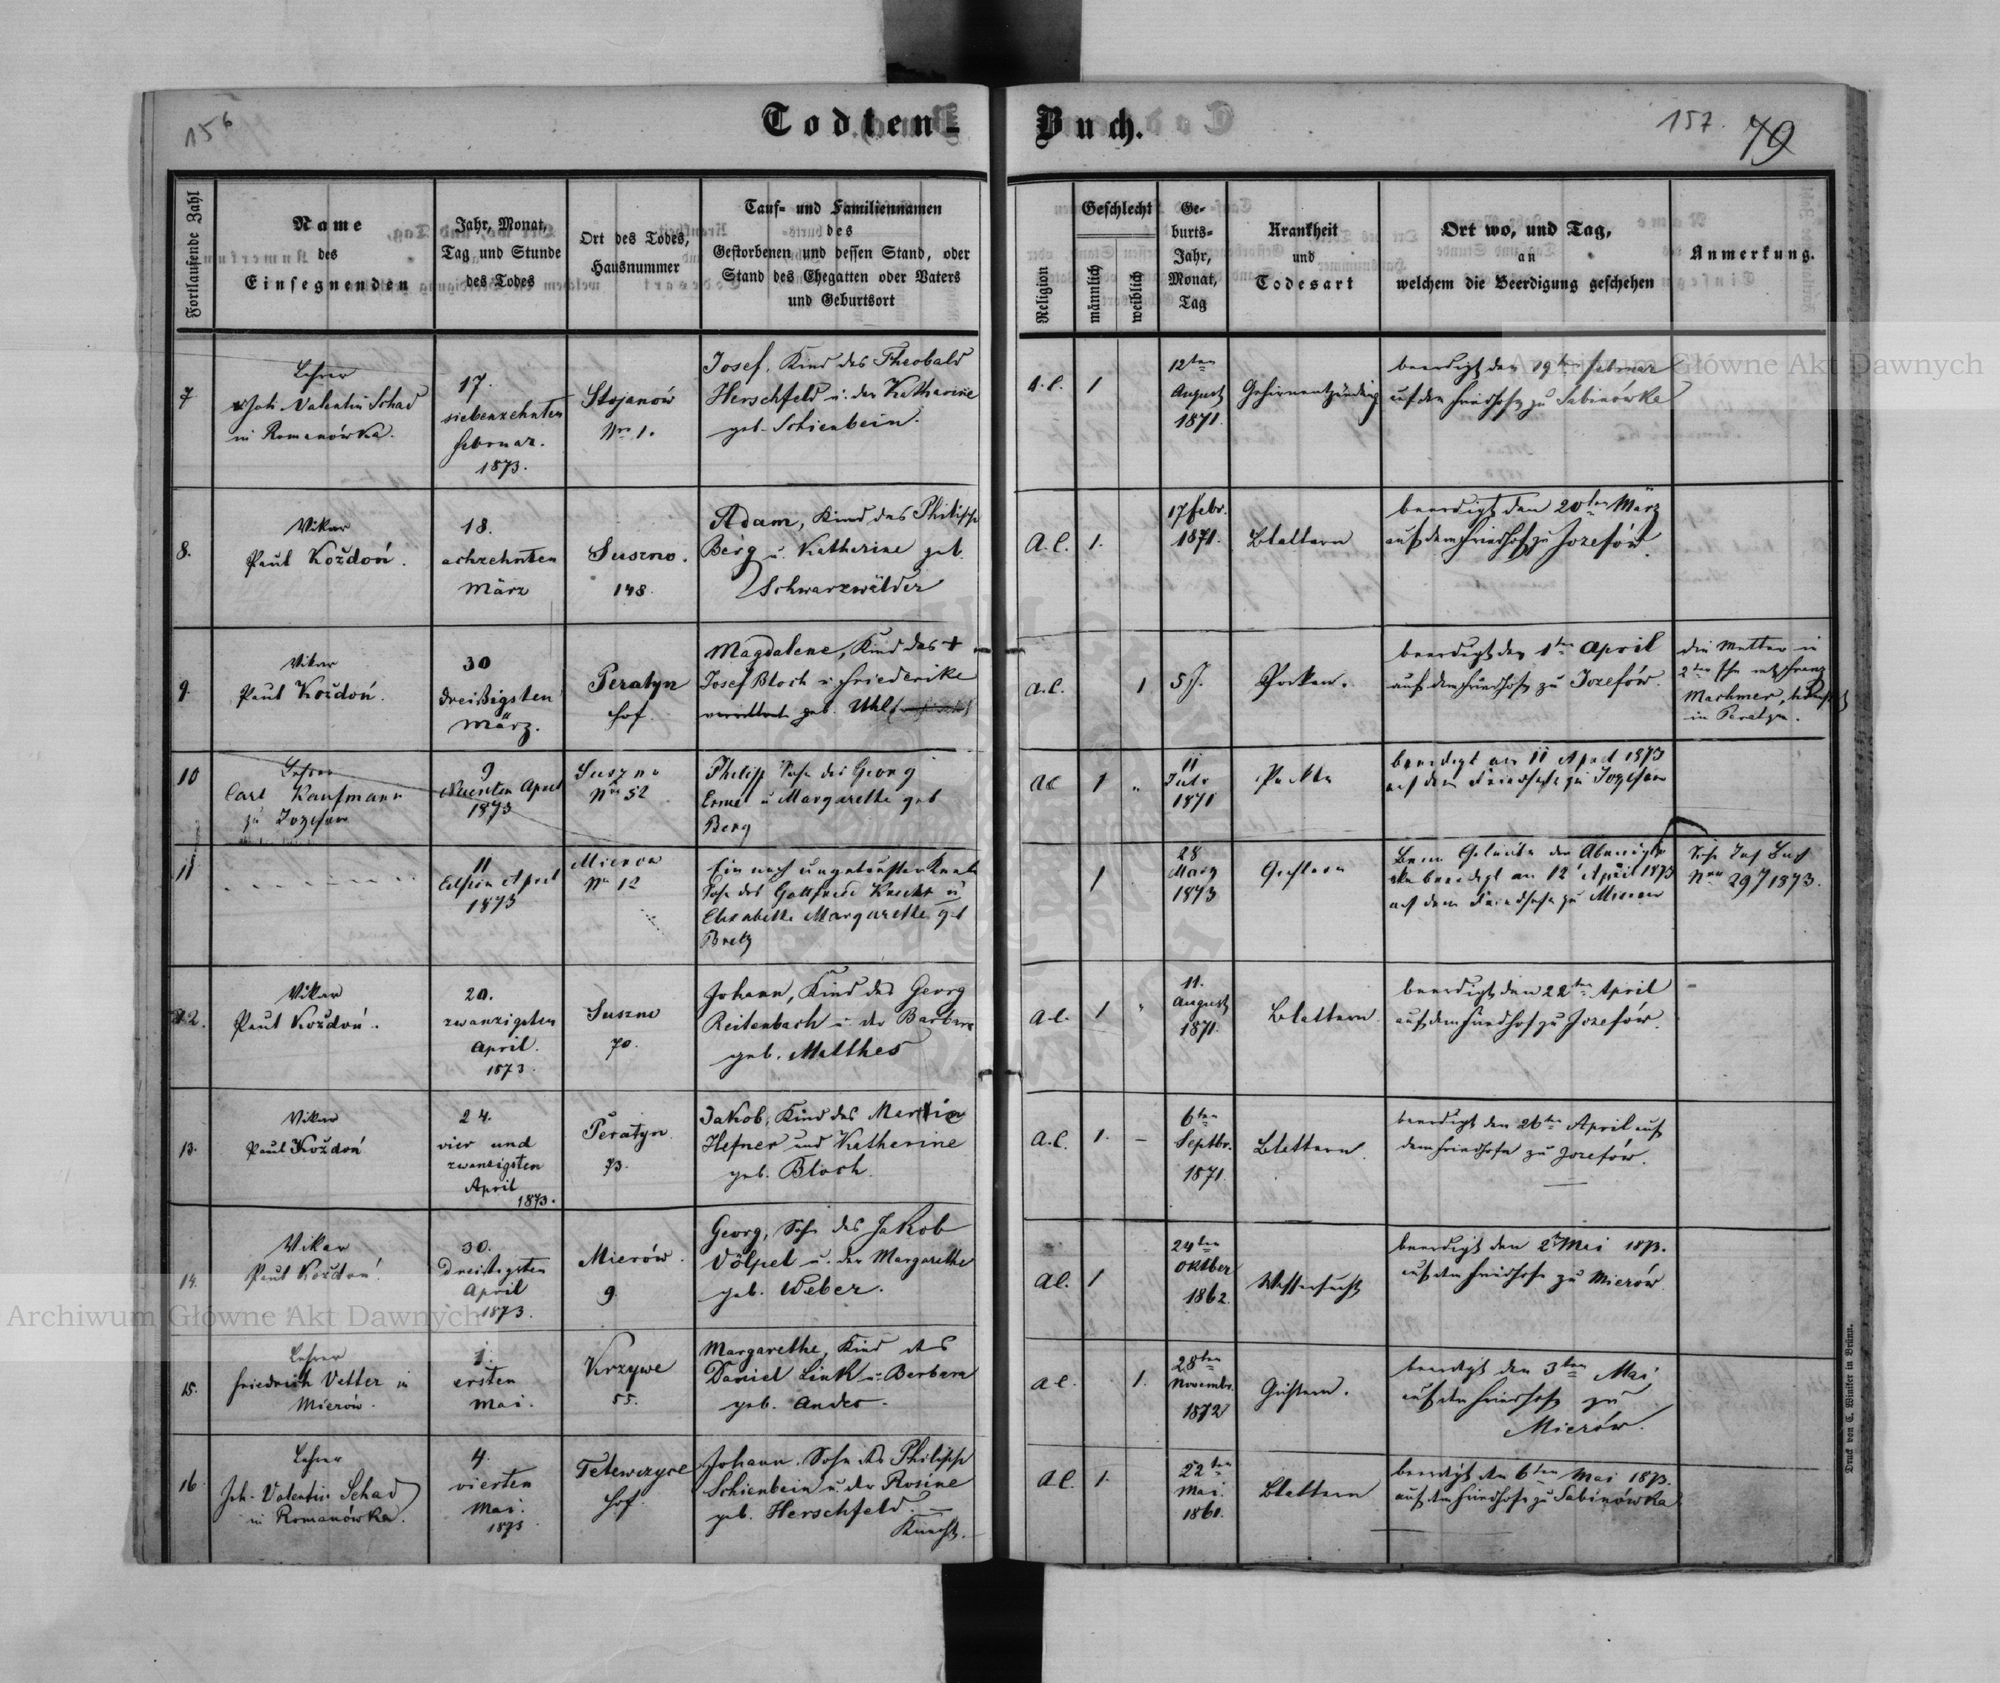 156
Todten-
Buch.
157.
79
Fortlaufende Zahl
Name
des
Einsegnenden
Jahr, Monat,
Tag und Stunde
des Todes
Ort des Todes,
Hausnummer
Tauf- und Familiennamen
des
Gestorbenen und dessen Stand, oder
Stand des Ehegatten oder Vaters
und Geburtsort
Religion
Geschlecht
männlich
weiblich
Ge-
burts-
Jahr,
Monat,
Tag
Krankheit
und
Todesart
Ort wo, und Tag,
an
welchem die Beerdigung geschehen
Anmerkung.
7
Lehrer
Joh. Valentin Schad
in Romanówka.
17.
siebenzehnten
Februar.
1873.
Stojanów
Nro 1.
Josef, Kind des Theobald
Herschfeld u. der Katharine
geb. Schienbein.
A.C.
1
12ten
August
1871.
Gehirnentzündung
beerdigt den 19ten Februar
auf dem Friedhofe zu Sabinówka
8.
Vikar
Paul Koždoń.
18.
achzehnten
März
Suszno.
148
Adam, Kind des Philipp
Berg u. Katherine geb.
Schwarzwälder
A.C.
1.
17 Febr.
1871.
Blattern
beerdigt den 20ten März
auf dem Friedhofe zu Jozefów.
9.
Vikar
Paul Koždoń.
30
dreißigsten
März.
Peratyn
Hof
Magdalene, Kind des +
Josef Bloch u. Friederike
geb. Uhl
A.C.
1
5 J.
Pocken.
beerdigt den 1ten April
auf dem Friedhofe zu Jozefów.
die Mutter in
2ter Ehe mit Franz
Machmer,
in Peratyn.
10
Lehrer
Carl Kaufmann
zu Jozefow
9
Neunten April
1873
Suszno
Nro 52
Philipp Sohn des Georg
Ermel u Margarethe geb
Berg
AC
1
"
11
Juli
1871
Pocken
beerdigt am 11 April 1873
auf dem Friedhofe zu Jozefow
11
11
Eilften April
1873
Mierow
Nro 12
Ein noch ungetaufter Knabe
Sohn des Gottfried Knecht u
Elisabetha Margarethe geb
Bretz
1
28
März
1873
Gichtern
Beim Geläute der
beerdigt am 12 April 1873
auf dem Friedhofe zu Mierow
Siehe Buch
Nro 29 1873.
12.
Vikar
Paul Koždoń.
20.
zwanzigsten
April.
1873.
Suszno
70.
Johann, Kind des Georg
Reitenbach u. der Barbara
geb. Matthes
A.C.
1
"
11.
August
1871.
Blattern.
beerdigt den 22ten April
auf dem Friedhof zu Jozefów.
13.
Vikar
Paul Koždoń
24.
vier und
zwanzigsten
April
1873.
Peratyn
73.
Jakob, Kind des Martin
Hefner und Katherine
geb. Bloch.
A.C.
1.
-
6ten
Septbr.
1871.
Blattern.
beerdigt den 26ten April auf
dem Friedhofe zu Jozefów.
14.
Vikar
Paul Koždoń.
30.
dreißigsten
April
1873.
Mierów.
9.
Georg, Sohn des Jakob
Völpel u. der Margarethe
geb. Weber.
AC.
1
24ten
Oktber
1862.
Wassersucht
beerdigt den 2ten Mai 1873.
auf dem Friedhofe zu Mierów.
15.
Lehrer
Friedrich Vetter in
Mierów.
1.
ersten
Mai.
Krzywe
55.
Margarethe, Kind des
Daniel Link u. Barbara
geb. Andes.
AC.
1.
28ten
Novembr.
1872
Gichtern.
beerdigt den 3ten Mai
auf dem Friedhofe zu
Mierów.
16.
Lehrer
Joh. Valentin Schad
in Romanówka.
4.
vierten
Mai.
1873.
Tetewczyce
Hof.
Johann, Sohn des Philipp
Schienbein u. der Rosine
geb. Herschfeld. —
Knecht.
AC.
1.
22ten
Mai.
1861.
Blattern
beerdigt den 6ten Mai 1873.
auf dem Friedhofe zu Sabinówka.
Druck von C. Winiker in Brünn.
Archiwum Główne Akt Dawnych
Archiwum Główne Akt Dawnych